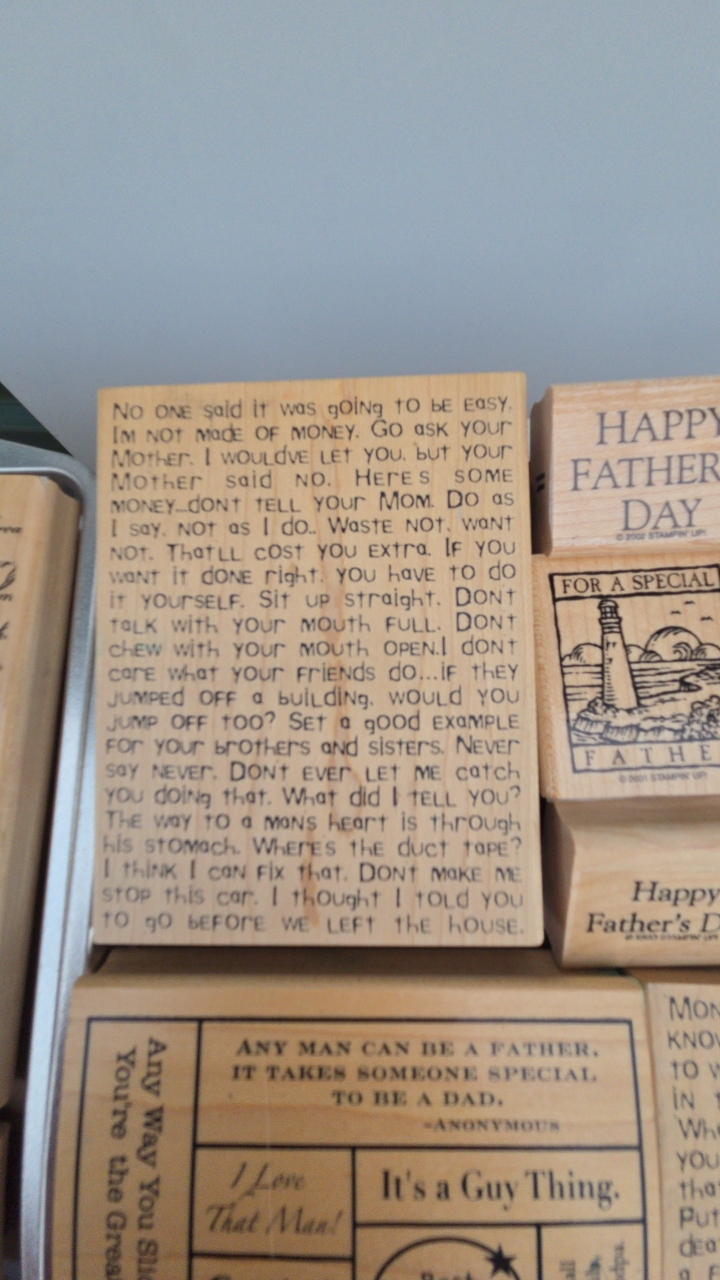 No one said it was going to be easy.
Im not made of money. Go ask your
Mother. I wouldve let you, but your
Mother said no. Heres some
money...dont tell your Mom. Do as
I say, not as I do.. Waste not, want
not. Thatll cost you extra. If you
want it done right, you have to do
it yourself. Sit up straight. Dont
talk with your mouth full. Dont
chew with your mouth open.I dont
care what your friends do...if they
jumped off a building, would you
jump off too? Set a good example
for your brothers and sisters. Never
say never. Dont ever let me catch
you doing that. What did I tell you?
The way to a mans heart is through
his stomach. Wheres the duct tape?
I think I can fix that. Dont make me
stop this car. I thought I told you
to go before we left the house.
HAPPY
FATHER'S
DAY
© 2002 STAMPIN' UP!
FOR A SPECIAL
FATHE
© 2001 STAMPIN' UP!
Happy
Father's D
ANY MAN CAN BE A FATHER,
IT TAKES SOMEONE SPECIAL
TO BE A DAD.
-ANONYMOUS
I Love
That Man!
It's a Guy Thing.
Any Way You Sli
You're the Grea
Best
Mon
know
to w
in t
Whe
you
that
Put
dea
a